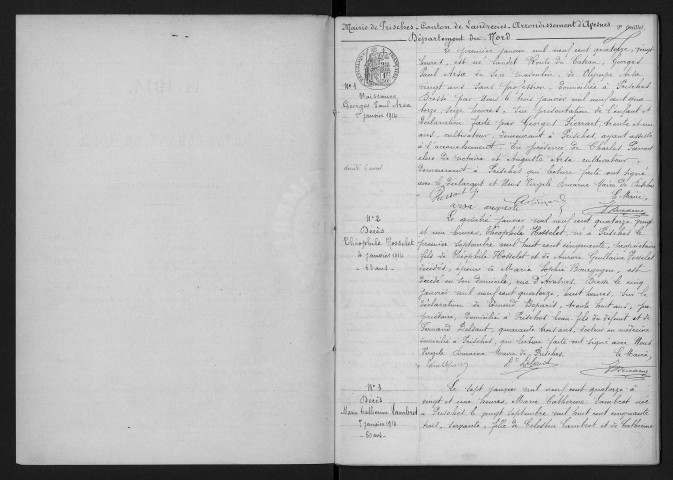 Mairie de Prisches - Canton de Landrecies - Arrondissement d'Avesnes
Département du Nord
N° 1
Naissance
Georges Paul Arsa
1er janvier 1914
Le premier janvier mil neuf cent quatorze, vingt
heures, est né
Paul Arsa du sexe masculin, de Olympe Arsa
vingt ans sans profession, domiciliée à Prisches
Dressé par Nous le trois janvier mil neuf cent qua
torze, seize heures, Sur présentation de l'enfant et
déclaration faite par Georges Pierrart, trente et un
ans, cultivateur, demeurant à Prisches, ayant assisté
à l'accouchement. En présence de Charles
clerc de notaire et Auguste Arsa cultivateur,
demeurant à Prisches qui lecture faite ont signé
avec le déclarant et Nous Virgile Amarne Maire de Prisches
Le Maire,
N° 2
Décès
Théophile Hosselet
4 janvier 1914
- 63 ans -
Le quatre janvier mil neuf cent quatorze, vingt
et une heures, Théophile Hosselet, né à Prisches le
premier septembre mil huit cent cinquante, propriétaire
fils de Théophile Hosselet et de Aurore Guillaine
décédés, époux de Maria Sophie Bourgogne, est
décédé en son domicile, rue d'Avesnes. Dressé le cinq
janvier mil neuf cent quatorze, huit heures, Sur la
déclaration de Edmond Deparis, trente huit ans, pro
priétaire, domicilié à Prisches beau-fils du défunt et de
Fernand Delsaut, quarante trois ans, docteur en médecine
domicilié à Prisches, qui lecture faite ont signé avec Nous
Virgile Amarne Maire de Prisches.
Le Maire,
N° 3
Décès
Marie Catherine Lambret
7 janvier 1914
- 60 ans -
Le sept janvier mil neuf cent quatorze à
vingt et une heures, Marie Catherine Lambret née
à Prisches le vingt septembre mil huit cent cinquante
trois, servante, fille de Célestin Lambret et de Catherine